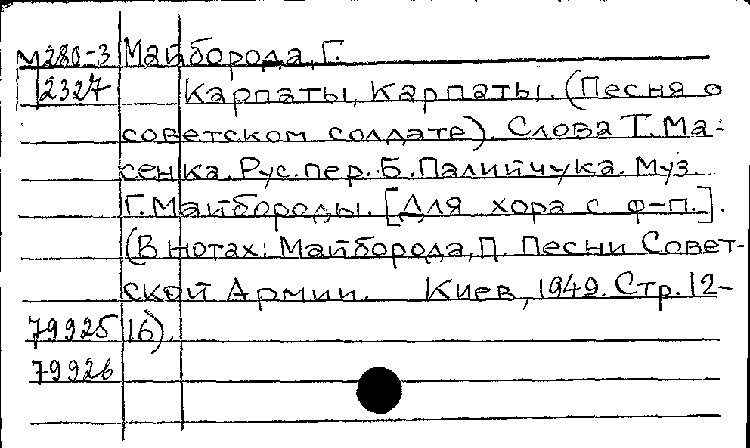 М280-3 Майборода, Г.
2327 Карпаты, Карпаты. (Песня о
советском солдате). Слова Т. Ма-
сенка. Рус. пер. Б. Палийчука. Муз.
Г. Майбороды. [Для хора с ф-п.].
(В нотах: Майборода, П. Песни Совет-
ской Армии. Киев, 1949. Стр. 12-
79925 16).
79926